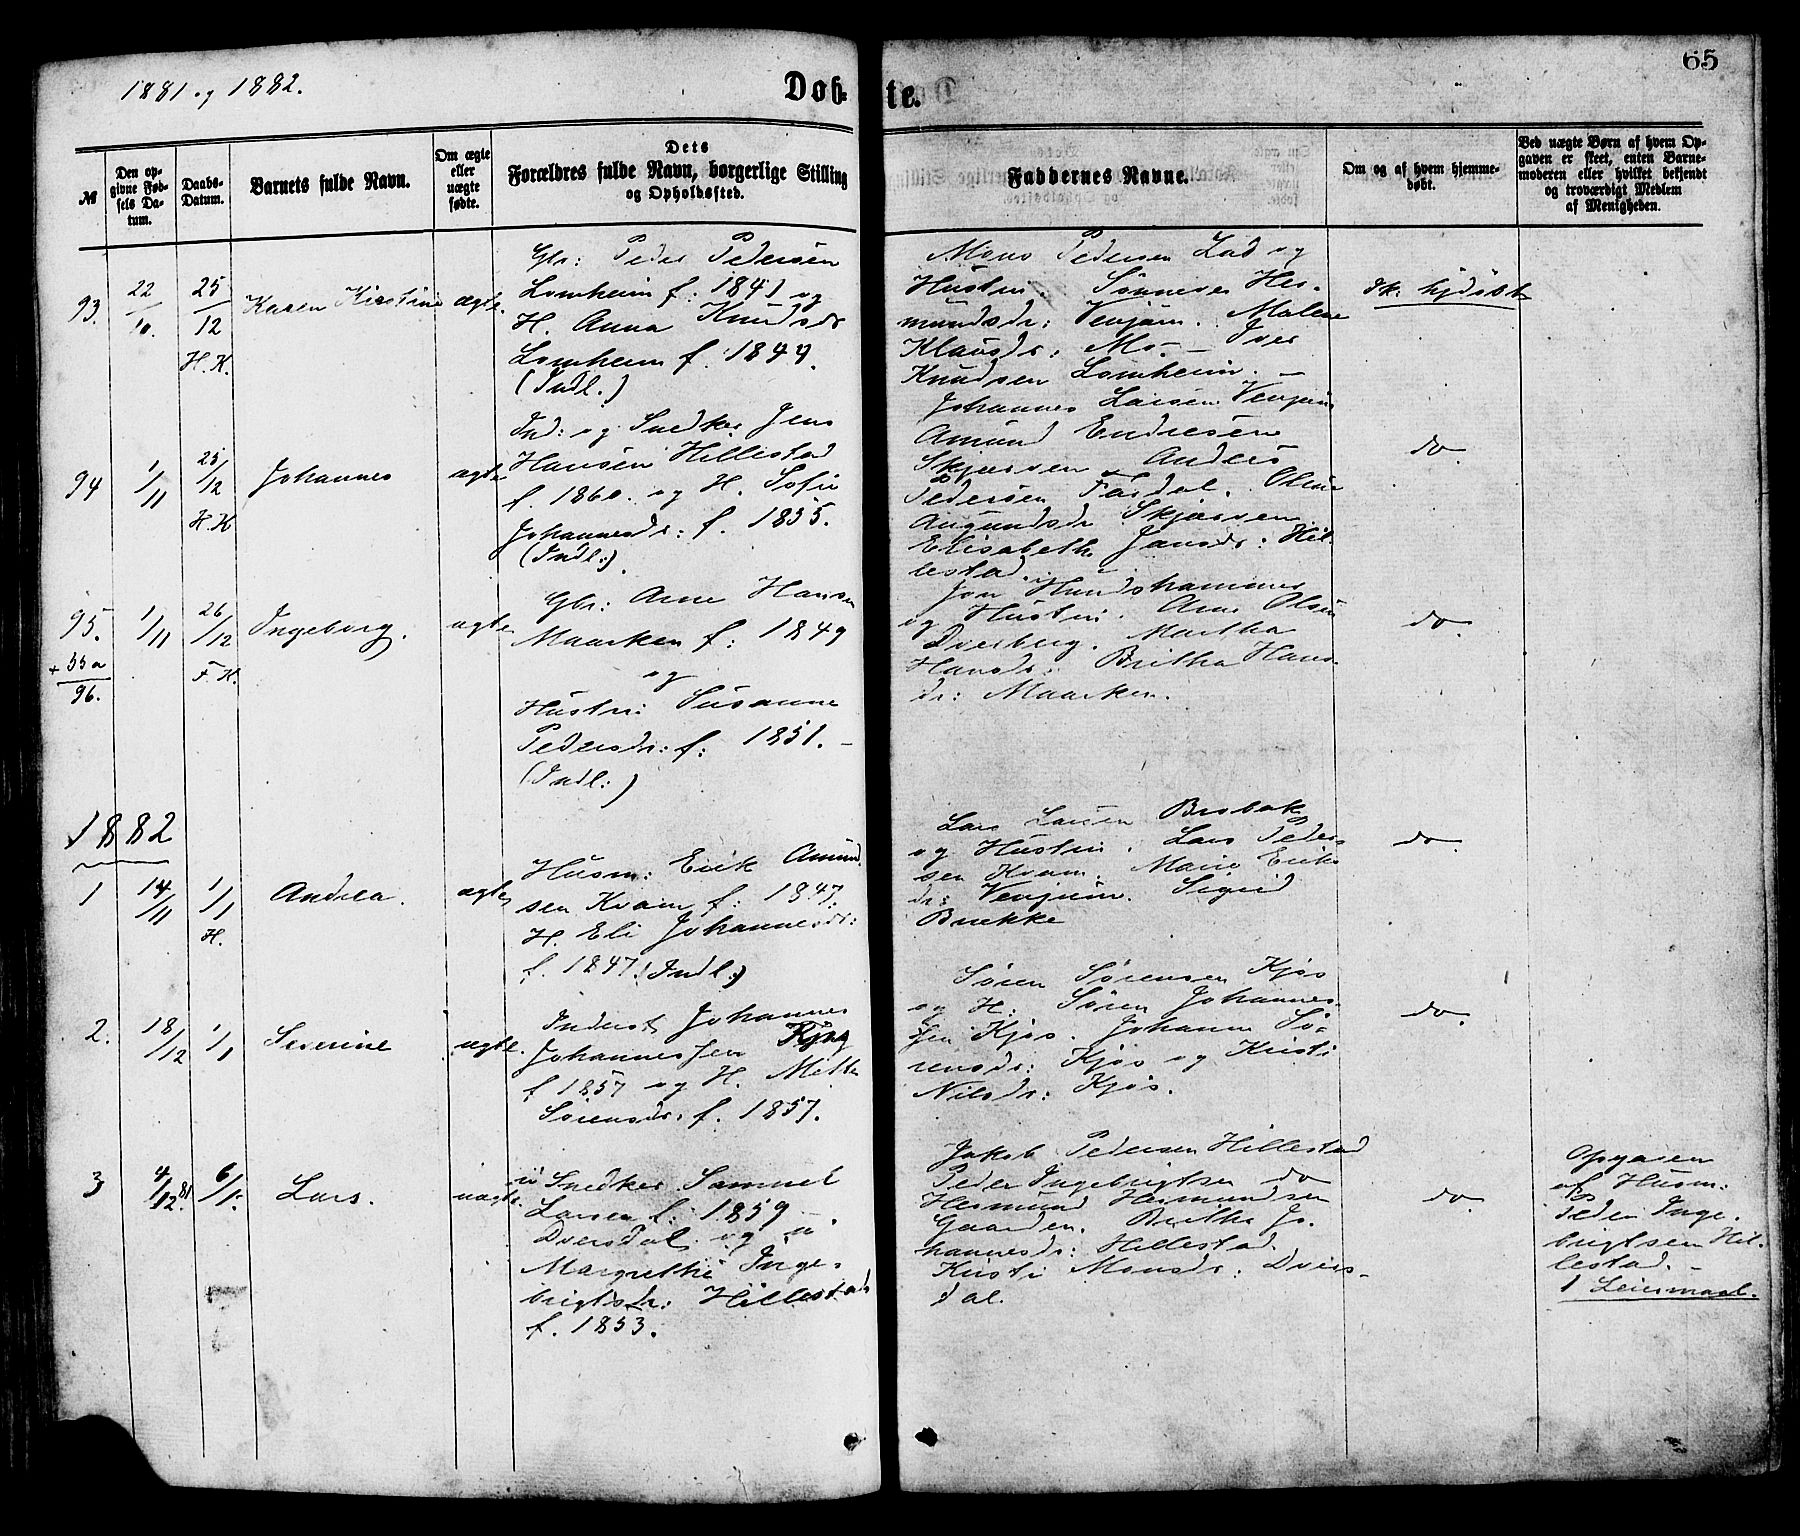 1881 og 1882.
Døb-
te.
65
№
Den op-
givne Fød-
sels Da-
tum.
Daabs-
Datum.
Barnets fulde Navn.
Om ægte
eller
uægte
fødte.
Dets
Forældres fulde Navn, borgerlige Stilling
og Opholdssted.
Faddernes Navne.
Om og af hvem hjemme-
døbt.
Ved uægte Børn af hvem Op-
gaven er skeet, enten Barne-
moderen eller hvilket bekjendt
og troværdigt Medlem
af Menigheden.
93.
22/10.
25/12
H. K.
Karen Kirstine
ægte.
Gbr: Peder Pedersen
Lomheim f: 1841 og
H. Anna Knudsdr
Lomheim f: 1844.
(Indl.)
Mons Pedersen Lad og
Hustru. Sønneva Her-
mundsdr: Venjum. Malene
Klausdr: Mo. — Iver
Knudsen Lomheim. —
Ik: hjdøbt
94
1/11
25/12
H. K
Johannes
ægte
Ind: og Snedker Jens
Hansen Hillestad
f. 1860. og H. Sofie
Johannesdr: f. 1855.
(Indl:).
Johannes Larsen Venjum
Amund Endresen
Skjerven Anders
Pedersen Fardal. Oline
Augundsdr Skjerven
Elisabeth Jansdr: Hil-
lestad.
do.
95.
+ 55a
96.
1/11
26/12
F. H.
Ingeborg.
ægte
Gbr: Arne Hansen
Maarken f: 1849
og
Hustru: Susanne
Pedersdr: f: 1851. —
(Indl:)
Jon Hundshammer
og Hustru. Arne Olsen
Dverberg. Martha
Hansdr: Britha Hans-
dr: Maarken.
do.
1882
1
14/11
1/1
H.
Andrea.
ægte
Husm: Erik Amund-
sen Kvam f: 1847.
H. Eli Johannesdr:
f. 1847. (Indl:)
Lars Larsen Brobak
og Hustru. Lars Peder-
sen Kvam. Marie Eriks
dr: Venjum. Sigrid
Brække
do.
2.
18/12
1/1
Severine
ægte.
Inderst Johannes
Johannessen Kjøs
f 1857 og H. Mette
Sørensdr: f. 1857.
Søren Sørensen Kjøs
og H: Søren Johannes-
sen Kjøs. Johanne Sø-
rensdr: Kjøs og Kristi
Nilsdr: Kjøs.
do.
3
4/12 81.
6/1.
Lars.
uægte.
u Snedker Samuel
Larsen f: 1859
Dversdal og u
Margrethe Inge-
brigtsdr: Hillestad
f. 1853.
Jakob Pedersen Hillestad
Peder Ingebrigtsen do
Hermund Hermundsen
Gaarden. Britha Jo-
hannesdr: Hillestad.
Kristi Monsdr: Dvers-
dal.
do.
Opgaven
af Husm:
Peder Inge-
brigtsen Hil-
lestad. —
1 Leiermaal.